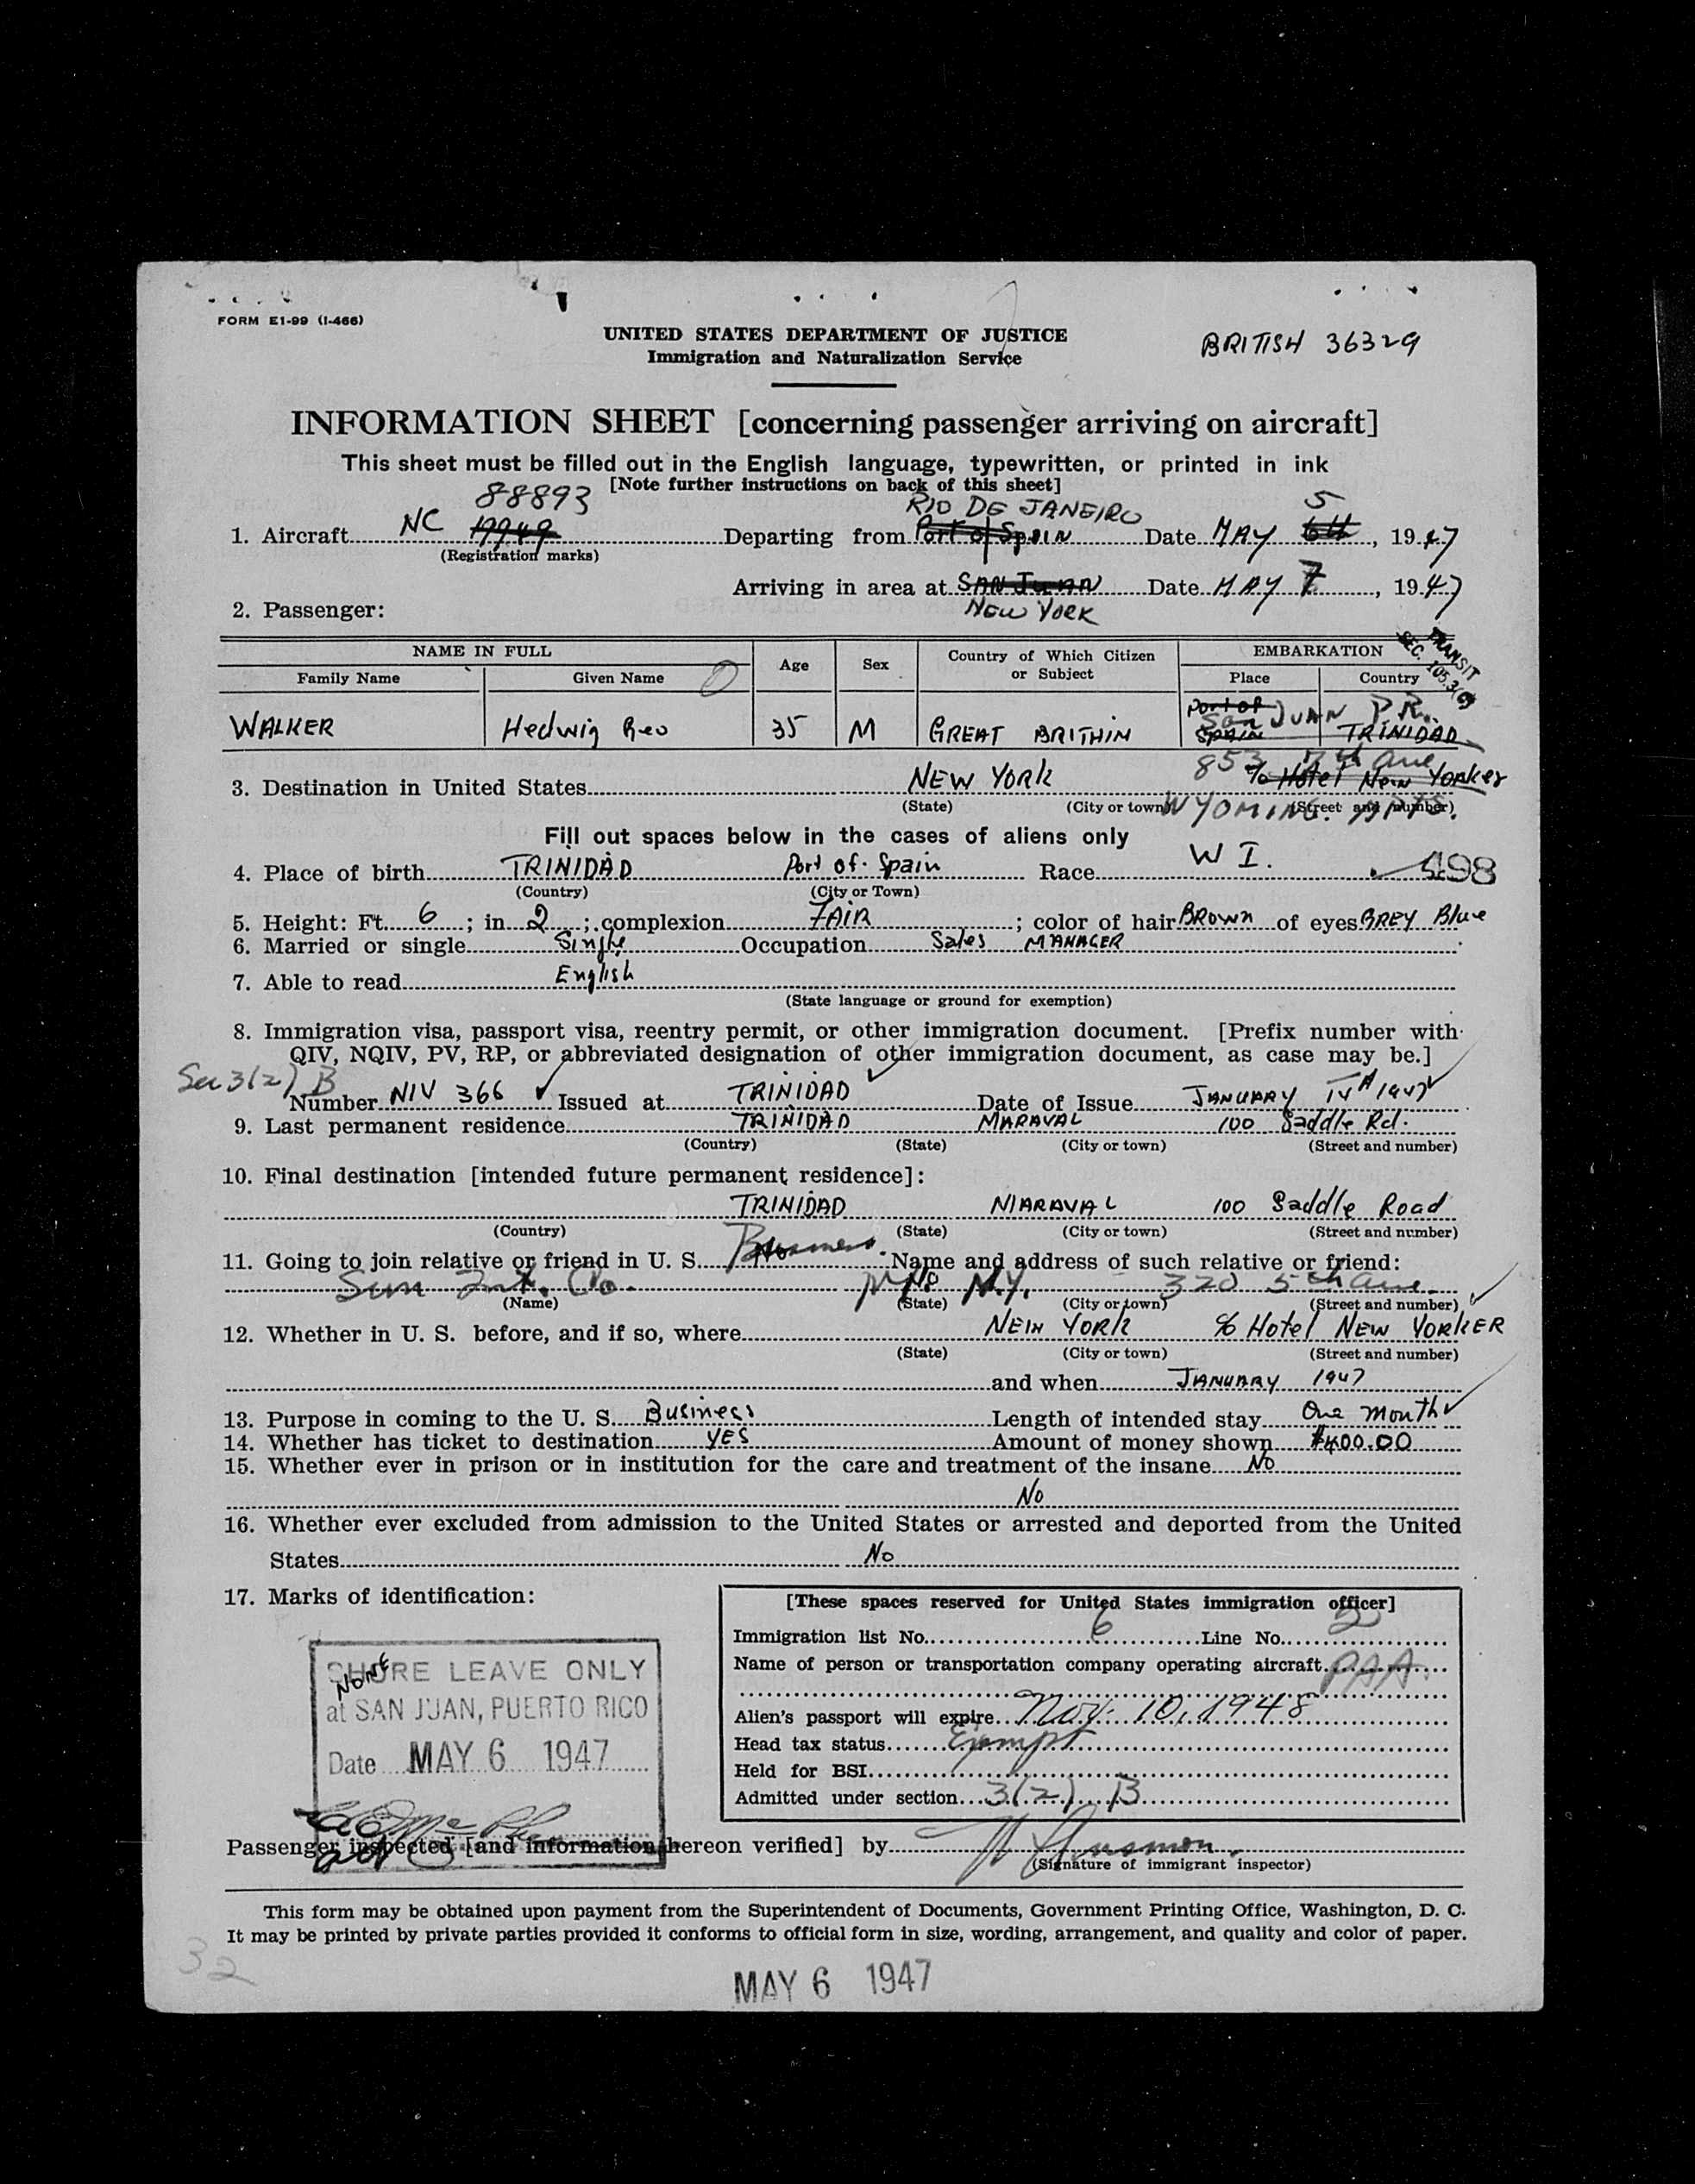 FORM E1-99 (I-466)
UNITED STATES DEPARTMENT OF JUSTICE
Immigration and Naturalization Service
BRITISH 36329
INFORMATION SHEET [concerning passenger arriving on aircraft]
This sheet must be filled out in the English language, typewritten, or printed in ink
[Note further instructions on back of this sheet]
88893 RIO DE JANEIRO 5
1. Aircraft NC Departing from Port of Spain Date MAY 6th, 1947
(Registration marks)
Arriving in area at SAN JUAN Date MAY 7, 1947
2. Passenger: NEW YORK
TRANSIT
SEC. 105.3(
NAME IN FULL Age Sex Country of Which Citizen or Subject EMBARKATION
Family Name Given Name Place Country
Port of San JUAN P.R.
WALKER Hedwig 35 M GREAT BRITHIN SPAIN TRINIDAD
853 7th Ave
3. Destination in United States NEW YORK % Hotel New Yorker
(State) (City or town) (Street and number)
WYOMING APTS.
Fill out spaces below in the cases of aliens only
4. Place of birth TRINIDAD Port of Spain Race W I. 498
(Country) (City or Town)
5. Height: Ft. 6; in 2; complexion FAIR; color of hair BROWN of eyes GREY Blue
6. Married or single Single Occupation Sales MANAGER
7. Able to read English
(State language or ground for exemption)
8. Immigration visa, passport visa, reentry permit, or other immigration document. [Prefix number with
QIV, NQIV, PV, RP, or abbreviated designation of other immigration document, as case may be.]
Sec 3(2) B
Number NIV 366 Issued at TRINIDAD Date of Issue JANUARY 1947
9. Last permanent residence TRINIDAD MARAVAL 100 Saddle Rd.
(Country) (State) (City or town) (Street and number)
10. Final destination [intended future permanent residence]:
TRINIDAD MARAVAL 100 Saddle Road
(Country) (State) (City or town) (Street and number)
11. Going to join relative or friend in U. S. Business. Name and address of such relative or friend:
Sun Int. Co. N.Y. 320 5th Ave.
(Name) (State) (City or town) (Street and number)
12. Whether in U. S. before, and if so, where NEW YORK % Hotel NEW YORKER
(State) (City or town) (Street and number)
and when JANUARY 1947
13. Purpose in coming to the U. S. Business Length of intended stay One month
14. Whether has ticket to destination YES Amount of money shown $400.00
15. Whether ever in prison or in institution for the care and treatment of the insane No
No
16. Whether ever excluded from admission to the United States or arrested and deported from the United
States No
17. Marks of identification:
NONE
SHORE LEAVE ONLY
at SAN JUAN, PUERTO RICO
Date MAY 6 1947
[These spaces reserved for United States immigration officer]
Immigration list No. 6 Line No. 2
Name of person or transportation company operating aircraft PAA.
Alien's passport will expire Nov. 10, 1948
Head tax status Exempt
Held for BSI
Admitted under section 3(2) B
Passenger inspected [and information hereon verified] by
(Signature of immigrant inspector)
This form may be obtained upon payment from the Superintendent of Documents, Government Printing Office, Washington, D. C.
It may be printed by private parties provided it conforms to official form in size, wording, arrangement, and quality and color of paper.
32
MAY 6 1947